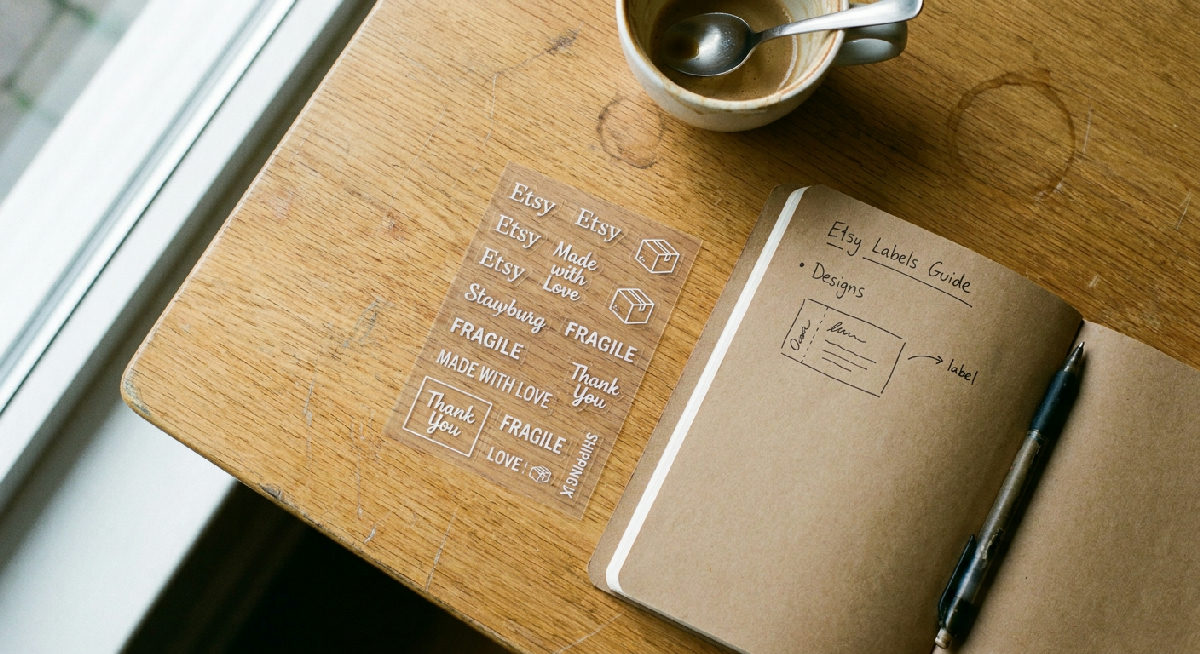 Etsy Etsy
Etsy
Made
with
Love
Etsy
Stayburg
FRAGILE FRAGILE
MADE WITH LOVE
Thank
You
Thank
You
FRAGILE
LOVE!
SHIPPING
Etsy Labels Guide
• Designs
label